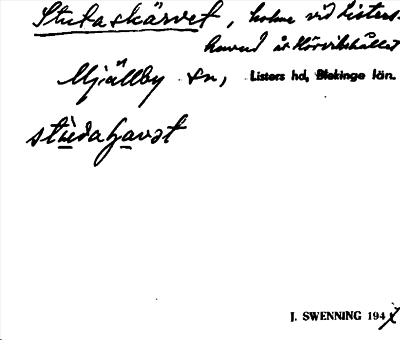 Stutaskärvet, holme vid Listers-
huvud åt Hörvikshållet
Mjällby sn, Listers hd, Blekinge län.
J. SWENNING 194